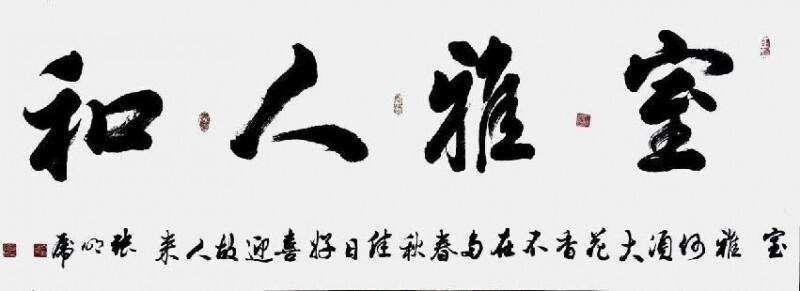 室雅人和
室雅何须大花香不在多春秋佳日好喜迎故人来 张